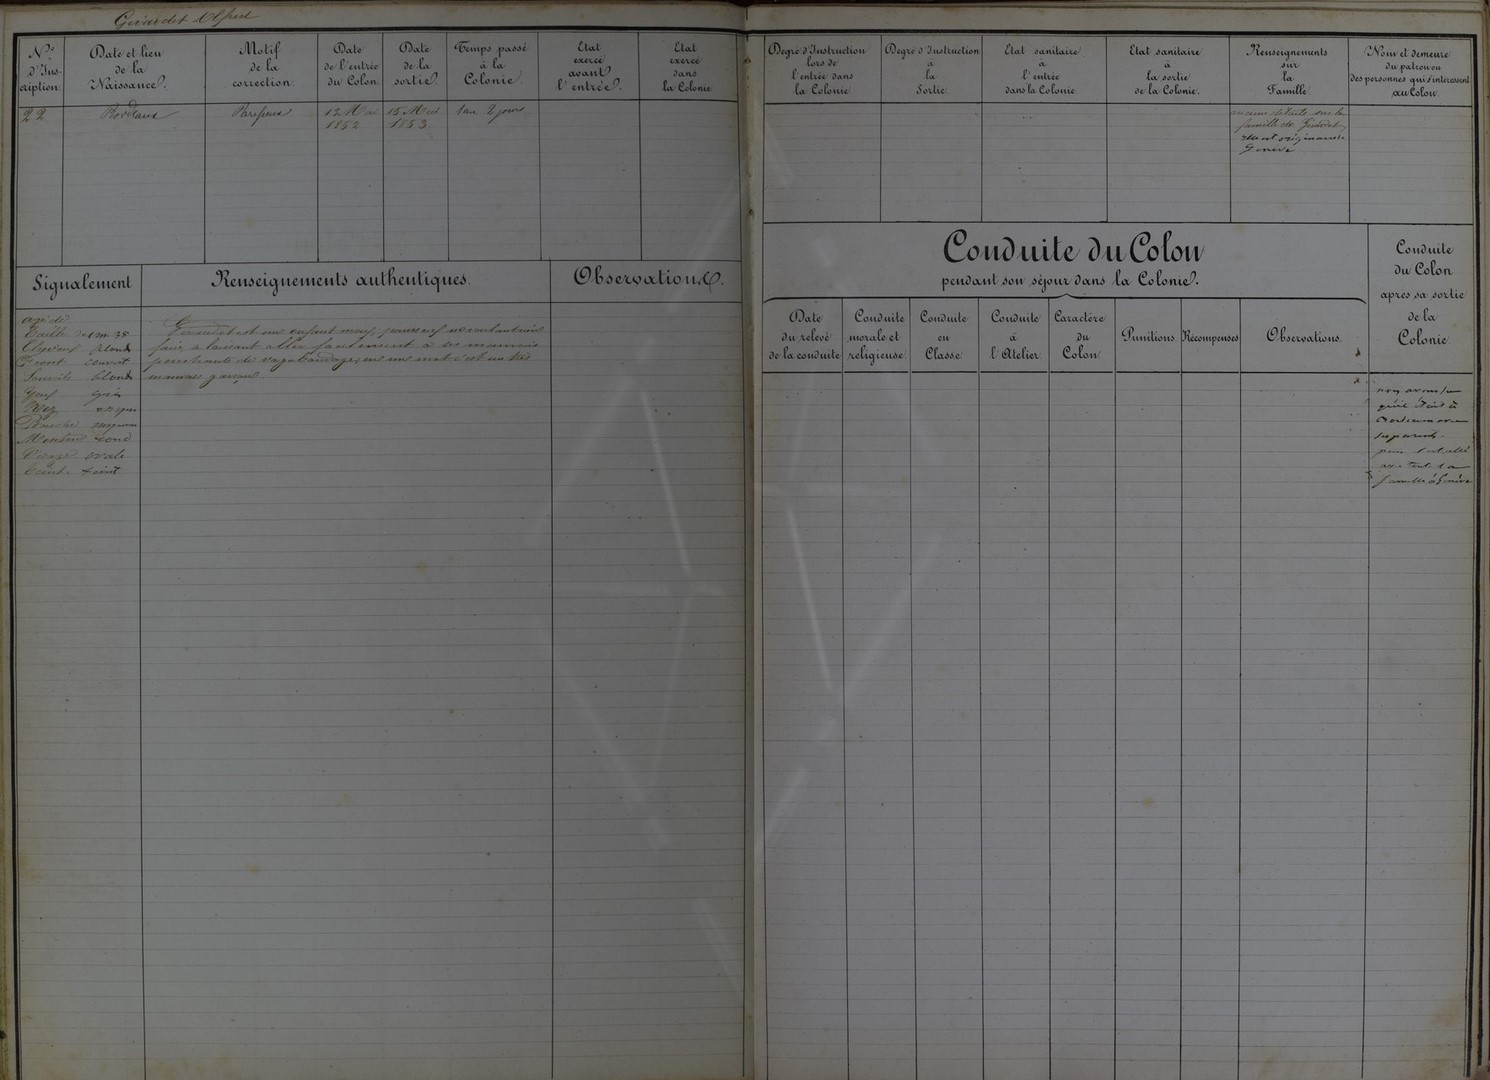 Girardet Alfred
N.o
d'Ins-
cription
Date et lieu
de la
Naissance.
Motif
de la
correction.
Date
de l'entrée
du Colon.
Date
de la
sortie.
Temps passé
à la
Colonie.
Etat
exercé
avant
l'entrée.
Etat
exercé
dans
la Colonie
22
Bordeaux
Paresseux
13 Mai
1852
15 Mai
1853.
1 an 2 jours
Signalement
Renseignements authentiques.
Observations.
agé de
Taille de 1 m. 38
Cheveux blonds
Front couvert
Sourcils blonds
Yeux gris
Nez
Bouche moyenne
Menton rond
Visage ovale
Teint
Girardet est un enfant mou, paresseux
faire, se laissant aller facilement à ses mauvais
penchants de vagabondage, en un mot c'est un très
mauvais garçon.
Degré d'Instruction
lors de
l'entrée dans
la Colonie
Degré d'Instruction
à
la
Sortie.
Etat sanitaire
à
l'entrée
dans la Colonie.
Etat sanitaire
à
la sortie
de la Colonie.
Renseignements
sur
la
Famille
Nom et demeure
du patron ou
des personnes qui s'intéressent
au Colon.
aucuns détails sur la
famille de Girardet,
elle est originaire de
Genève
Conduite du Colon
pendant son séjour dans la Colonie.
Conduite
du Colon
après sa sortie
de la
Colonie.
Date
du relevé
de la conduite
Conduite
morale et
religieuse
Conduite
en
Classe
Conduite
à
l'Atelier
Caractère
du
Colon.
Punitions
Récompenses
Observations.
nous avons su
qu'il était à
Bordeaux avec
ses parents.
puis il est allé
avec toute sa
famille à Genève